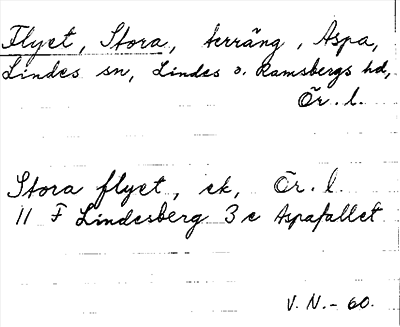 Flyet, Stora, terräng, Aspa,
Lindes sn, Lindes o. Ramsbergs hd,
Ör. l.
Stora flyet, ek, Ör. l.
11 F Lindesberg 3 e Aspafallet
V. N. - 60.